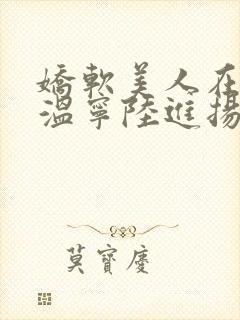 嬌軟美人在
溫寧陸進揚
莫寶慶